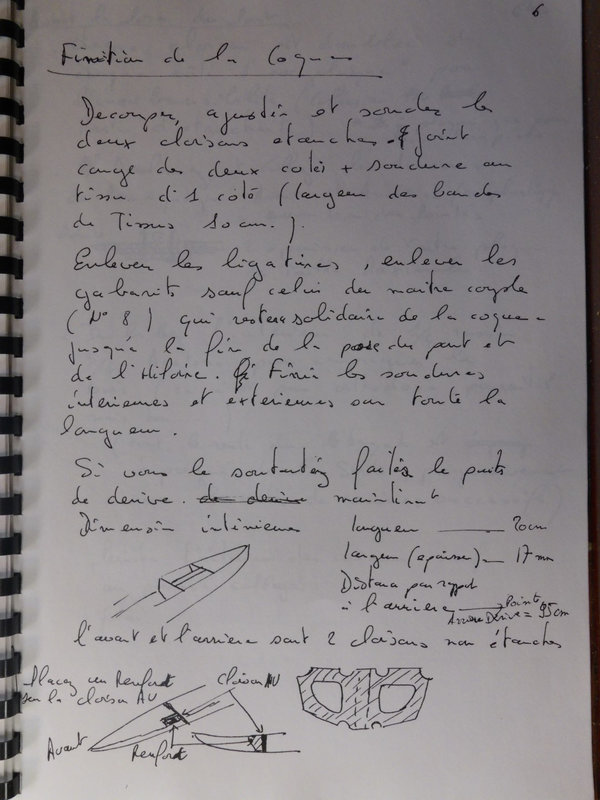 6
Finition de la Coque
Decouper, ajuster et souder les
deux cloisons etanches. joint
congé des deux cotés + soudure au
tissu d'1 coté (largeur des bandes
de Tissus 10 cm.).
Enlever les ligatures, enlever les
gabarits sauf celui du maitre couple
(N° 8) qui restera solidaire de la coque
jusqu'à la fin de la pose du pont et
de l'Hiloire. Finir les soudures
interieures et exterieures sur toute la
longueur.
Si vous le souhaitez faites le puits
de derive. de derive maintenant
Dimension intérieures longueur 20cm
largeur (epaisseur) 17 mm
Distance par rapport
à l'arriere Pointe
Arriere Dérive = 95cm
l'avant et l'arriere sont 2 cloisons non étanches
Placez un Renfort
sur la cloison AV
cloison AV
Avant
Renfort